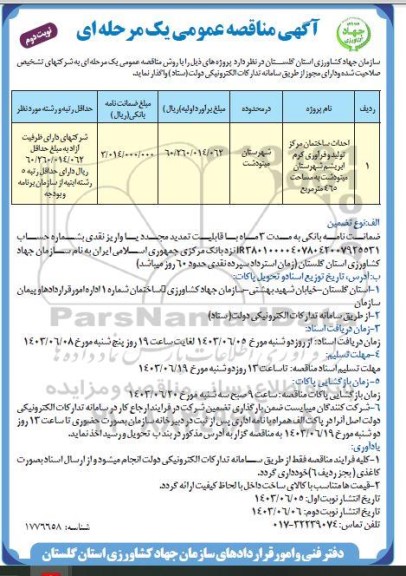 آگهی مناقصه عمومی یک مرحله ای
نوبت دوم
جهاد کشاورزی
سازمان جهاد کشاورزی استان گلستان در نظر دارد پروژه های ذیل را با روش مناقصه عمومی یک مرحله ای به شرکتهای تشخیص
صلاحیت شده و دارای مجوز از طریق سامانه تدارکات الکترونیکی دولت (ستاد) واگذار نماید.
ردیف
نام پروژه
در محدوده
مبلغ برآورد اولیه (ریال)
مبلغ ضمانت نامه بانکی (ریال)
حداقل رتبه و رشته مورد نظر
۱
احداث ساختمان مرکز
تولید و فرآوری کرم
ابریشم شهرستان
مینودشت به مساحت
۴۶۵ مترمربع
شهرستان
مینودشت
۶۰/۲۶۰/۰۱۴/۰۶۲
۳/۰۱۴/۰۰۰/۰۰۰
شرکتهای دارای ظرفیت
آزاد به مبلغ حداقل
۶۰/۲۶۰/۰۱۴/۰۶۲
ریال دارای حداقل رتبه ۵
رشته ابنیه از سازمان برنامه
و بودجه
الف: نوع تضمین
ضمانت نامه بانکی به مدت ۳ ماه با قابلیت تمدید مجدد یا واریز نقدی بشماره حساب
نزد بانک مرکزی جمهوری اسلامی ایران به نام سازمان جهاد
کشاورزی استان گلستان (زمان استرداد سپرده نقدی حدود ۶۰ روز میباشد)
ب: آدرس، تاریخ توزیع اسناد و تحویل پاکات:
۱-استان گلستان-خیابان شهید بهشتی-سازمان جهاد کشاورزی-ساختمان شماره ۱ اداره امور قراردادها و پیمان
سازمان
۲-از طریق سامانه تدارکات الکترونیکی دولت (ستاد)
۳-زمان دریافت اسناد:
زمان دریافت اسناد: از روز دو شنبه مورخ ۱۴۰۳/۰۶/۰۵ لغایت ساعت ۱۹ روز پنج شنبه مورخ ۱۴۰۳/۰۶/۰۸
۴-مهلت تسلیم:
مهلت تسلیم اسناد مناقصه: تا ساعت ۱۳ روز دو شنبه مورخ ۱۴۰۳/۰۶/۱۹
۵-زمان بازگشایی پاکات:
زمان بازگشایی پاکات مناقصه: ساعت ۹ صبح سه شنبه مورخ ۱۴۰۳/۰۶/۲۰
۶-شرکت کنندگان میبایست ضمن بارگذاری تضمین شرکت در فرایند ارجاع کار در سامانه تدارکات الکترونیکی
دولت اصل آنرا در پاکت الف همراه با نامه اداری پس از ثبت در دبیرخانه سازمان بصورت حضوری تا ساعت ۱۳ روز
دو شنبه مورخ ۱۴۰۳/۰۶/۱۹ به مناقصه گزار به آدرس مذکور در بند ب تحویل و رسید اخذ نماید.
یادآوری:
۱-کلیه فرایند مناقصه فقط از طریق سامانه تدارکات الکترونیکی دولت انجام میشود و از ارسال اسناد بصورت
کاغذی (بجز ردیف ۶) خودداری گردد.
۲-قیمت ها متناسب با کالای ساخت داخل با لحاظ کیفیت ارائه گردد.
تاریخ انتشار نوبت اول: ۱۴۰۳/۰۶/۰۵
تاریخ انتشار نوبت دوم: ۱۴۰۳/۰۶/۰۶
تلفن تماس: ۳۲۲۳۹۰۷۴-۰۱۷
شناسه: ۱۷۷۶۶۵۸
دفتر فنی و امور قراردادهای سازمان جهاد کشاورزی استان گلستان